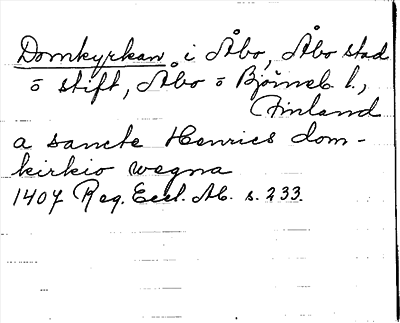 Domkyrkan i Åbo, Åbo stad
o stift, Åbo o Björneb. l.,
Finland
a sancte Henrics dom-
kirkio wegna
1407 Reg. Eccl. Ab. s. 233.